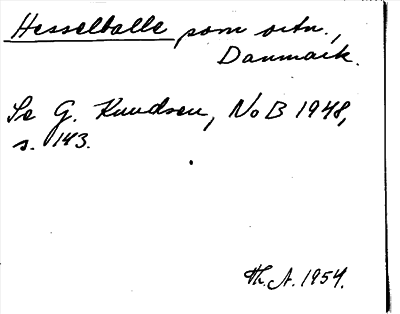 Hesselballe som ortn.,
Danmark.
Se G. Knudsen, NoB 1948,
s. 143.
Th. A. 1954.